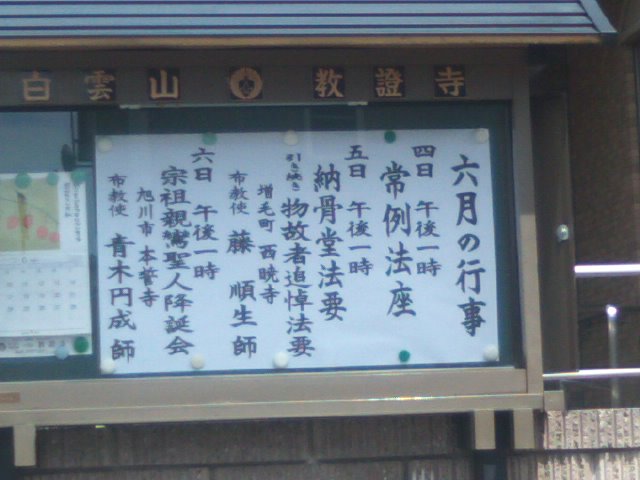 白雲山 教證寺
六月の行事
四日 午後一時
常例法座
五日 午後一時
納骨堂法要
引き続き 物故者追悼法要
増毛町 西暁寺
布教使 藤 順生 師
六日 午後一時
宗祖親鸞聖人降誕会
旭川市 本誓寺
布教使 青木円成 師